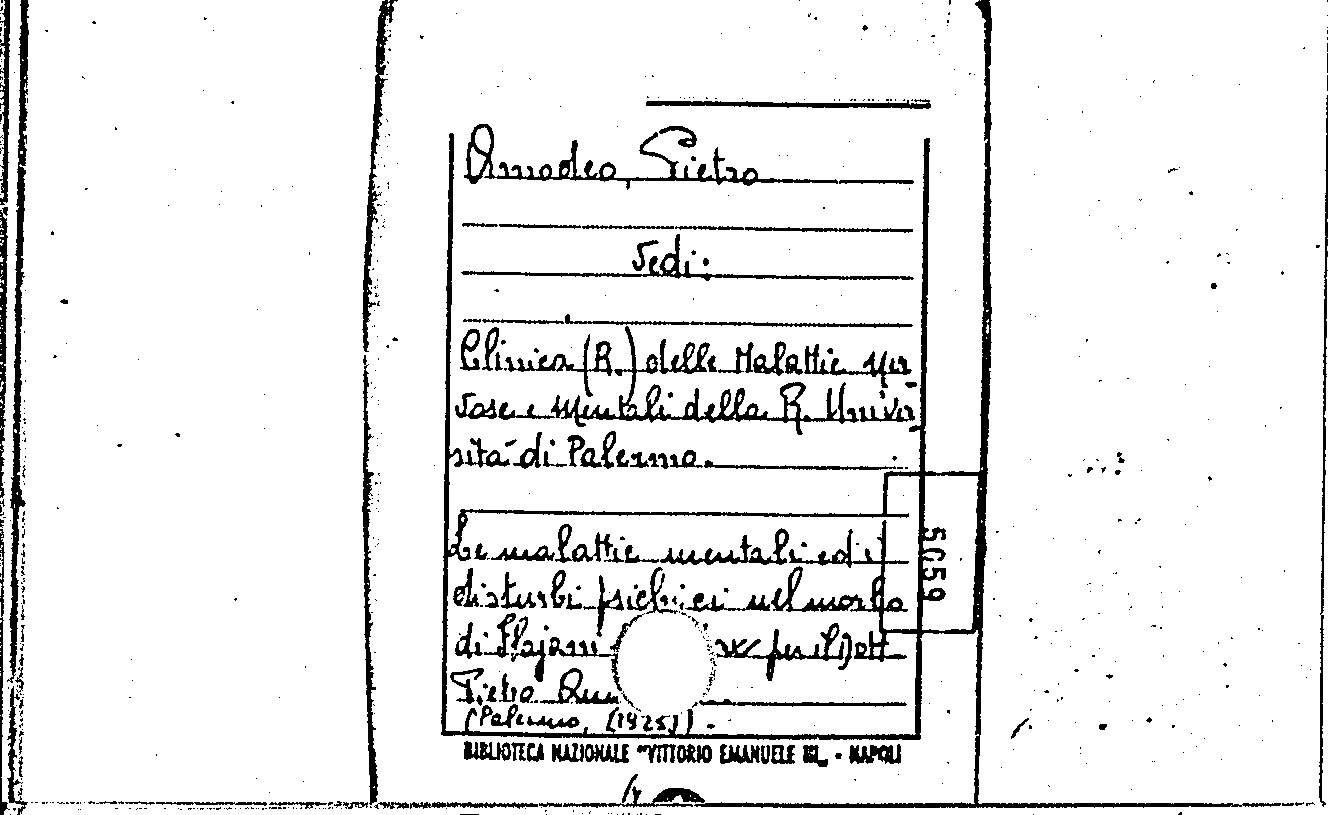 Amodeo, Pietro
Vedi:
Clinica (R.) delle Malattie Ner-
vose e Mentali della R. Univer-
sità di Palermo.
Le malattie mentali ed i
disturbi psichici nel morbo
di Flajani per il Dott.
Pietro
(Palermo, (1925)).
BIBLIOTECA NAZIONALE "VITTORIO EMANUELE III„ - NAPOLI
5059